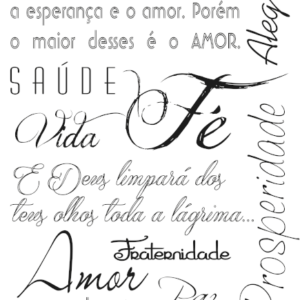 a esperança e o amor. Porém
o maior desses é o AMOR.
SAÚDE
Fé
Vida
E Deus limpará dos
teus olhos toda a lágrima...
Fraternidade
Amor
Prosperidade